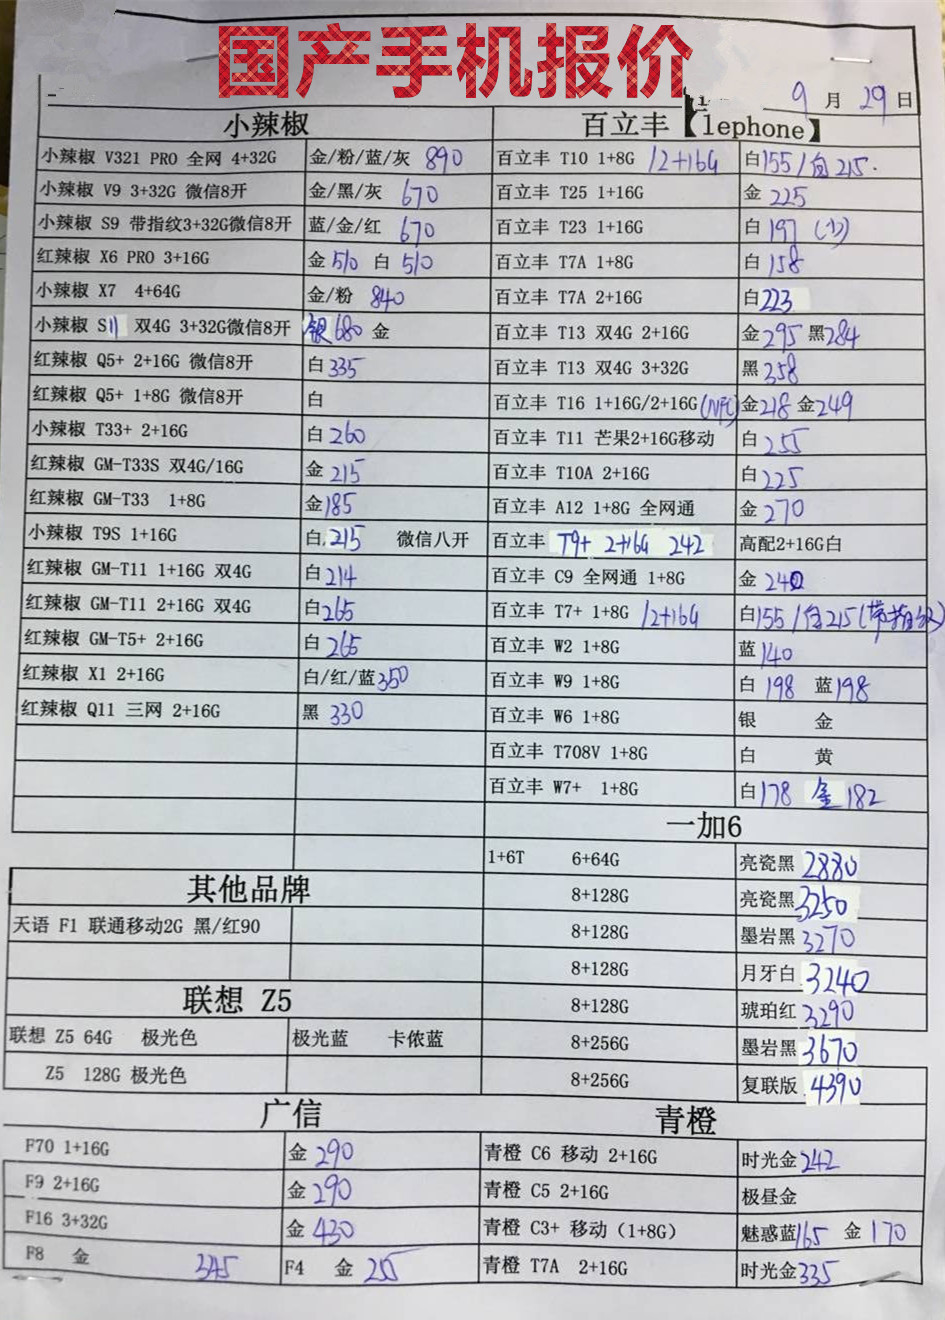 国产手机报价
9 月 29 日
小辣椒
小辣椒 V321 PRO 全网 4+32G 金/粉/蓝/灰 890
小辣椒 V9 3+32G 微信8开 金/黑/灰 670
小辣椒 S9 带指纹3+32G微信8开 蓝/金/红 670
红辣椒 X6 PRO 3+16G 金510 白 510
小辣椒 X7 4+64G 金/粉 840
小辣椒 S11 双4G 3+32G微信8开 银680 金
红辣椒 Q5+ 2+16G 微信8开 白335
红辣椒 Q5+ 1+8G 微信8开 白
小辣椒 T33+ 2+16G 白 260
红辣椒 GM-T33S 双4G/16G 金 215
红辣椒 GM-T33 1+8G 金185
小辣椒 T9S 1+16G 白 215 微信八开
红辣椒 GM-T11 1+16G 双4G 白214
红辣椒 GM-T11 2+16G 双4G 白265
红辣椒 GM-T5+ 2+16G 白 265
红辣椒 X1 2+16G 白/红/蓝350
红辣椒 Q11 三网 2+16G 黑 330
百立丰【lephone】
百立丰 T10 1+8G /2+16G 白155/白 215.
百立丰 T25 1+16G 金 225
百立丰 T23 1+16G 白 197 (少)
百立丰 T7A 1+8G 白 158
百立丰 T7A 2+16G 白223
百立丰 T13 双4G 2+16G 金295 黑284
百立丰 T13 双4G 3+32G 黑358
百立丰 T16 1+16G/2+16G(NFC) 金218 金249
百立丰 T11 芒果2+16G移动 白255
百立丰 T10A 2+16G 白225
百立丰 A12 1+8G 全网通 金270
百立丰 T9+ 2+16G 242 高配2+16G白
百立丰 C9 全网通 1+8G 金 240
百立丰 T7+ 1+8G /2+16G 白155/白215(带指纹)
百立丰 W2 1+8G 蓝140
百立丰 W9 1+8G 白 198 蓝198
百立丰 W6 1+8G 银 金
百立丰 T708V 1+8G 白 黄
百立丰 W7+ 1+8G 白178 金182
一加6
1+6T 6+64G 亮瓷黑 2880
8+128G 亮瓷黑3250
8+128G 墨岩黑 3270
8+128G 月牙白 3240
8+128G 琥珀红 3290
8+256G 墨岩黑 3670
8+256G 复联版 4390
其他品牌
天语 F1 联通移动2G 黑/红90
联想 Z5
联想 Z5 64G 极光色 极光蓝 卡侬蓝
Z5 128G 极光色
广信
F70 1+16G 金 290
F9 2+16G 金 290
F16 3+32G 金 430
F8 金 345 F4 金 255
青橙
青橙 C6 移动 2+16G 时光金242
青橙 C5 2+16G 极昼金
青橙 C3+ 移动（1+8G） 魅惑蓝165 金 170
青橙 T7A 2+16G 时光金335